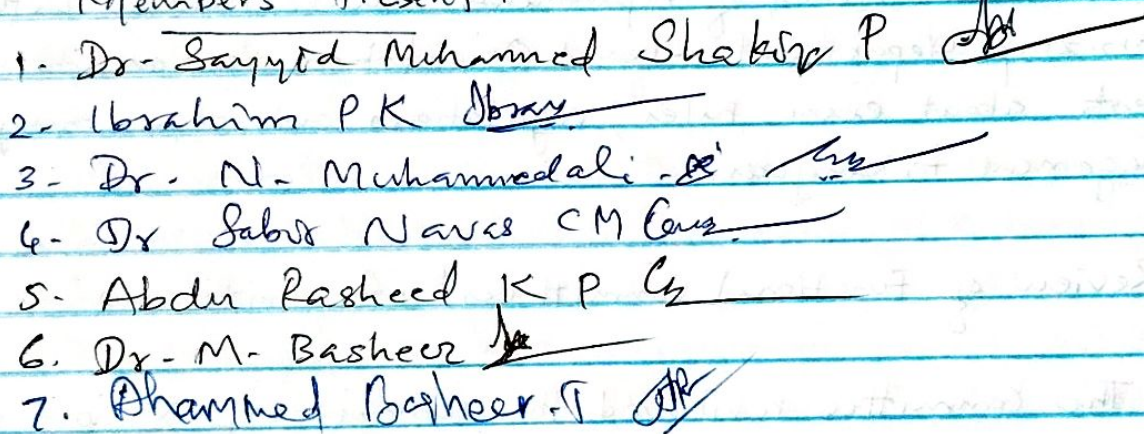 Members Present
1. Dr. Sayyid Muhammed Shakir P
2. Ibrahim P K
3. Dr. N. Muhammedali
4. Dr Sabir Navas CM
5. Abdu Rasheed K P
6. Dr. M. Basheer
7. Ahammed Basheer.T